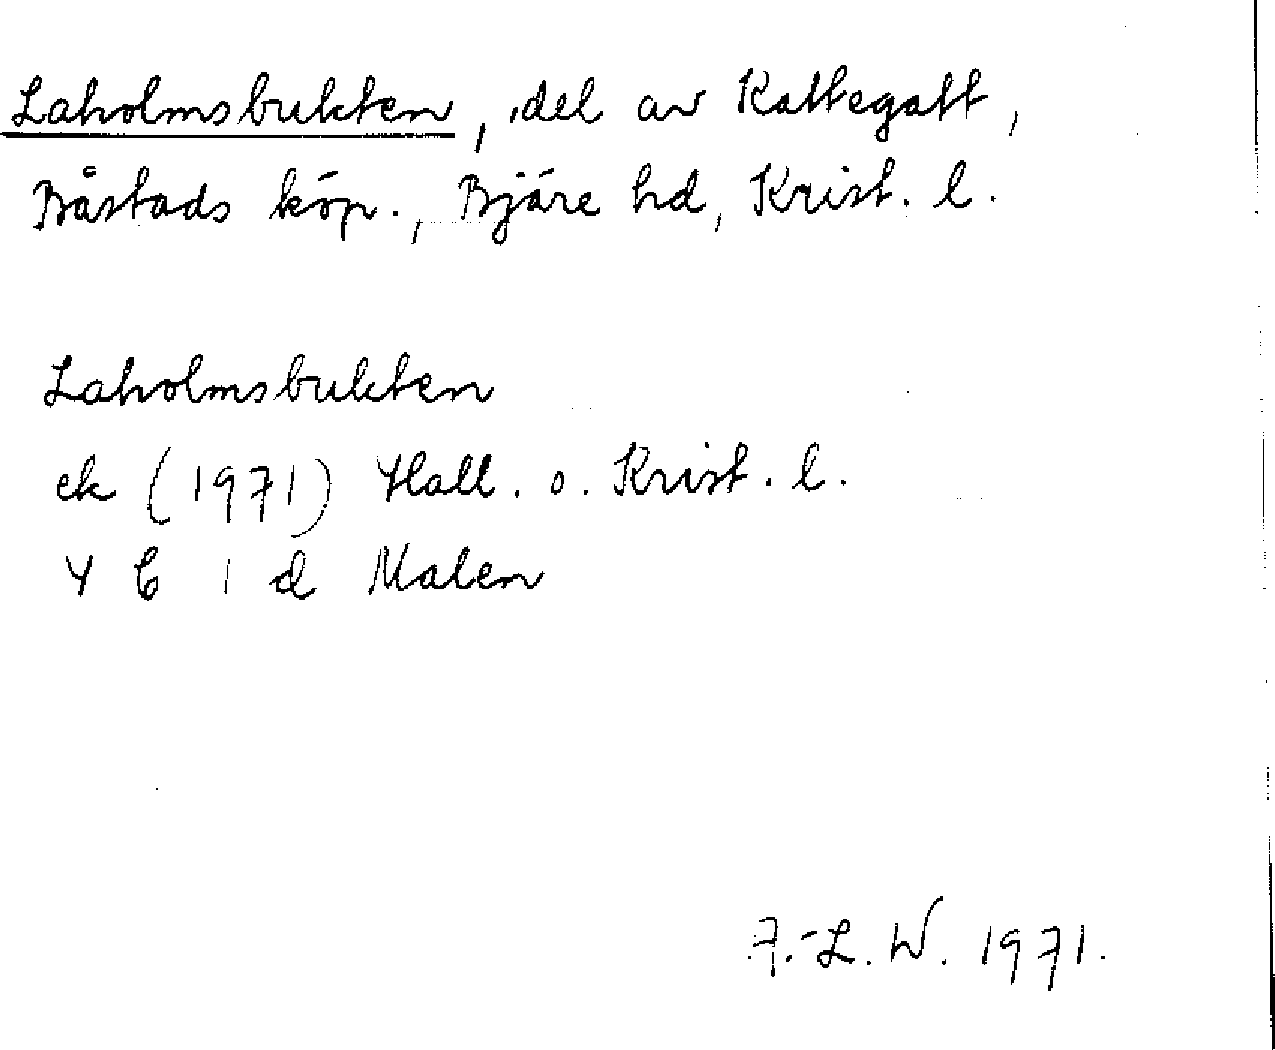 Laholmsbukten, del av Kattegatt,
Båstads köp., Bjäre hd, Krist. l.
Laholmsbukten
ek (1971) Hall. o. Krist. l.
4 C 1 d Malen
A.-L. W. 1971.